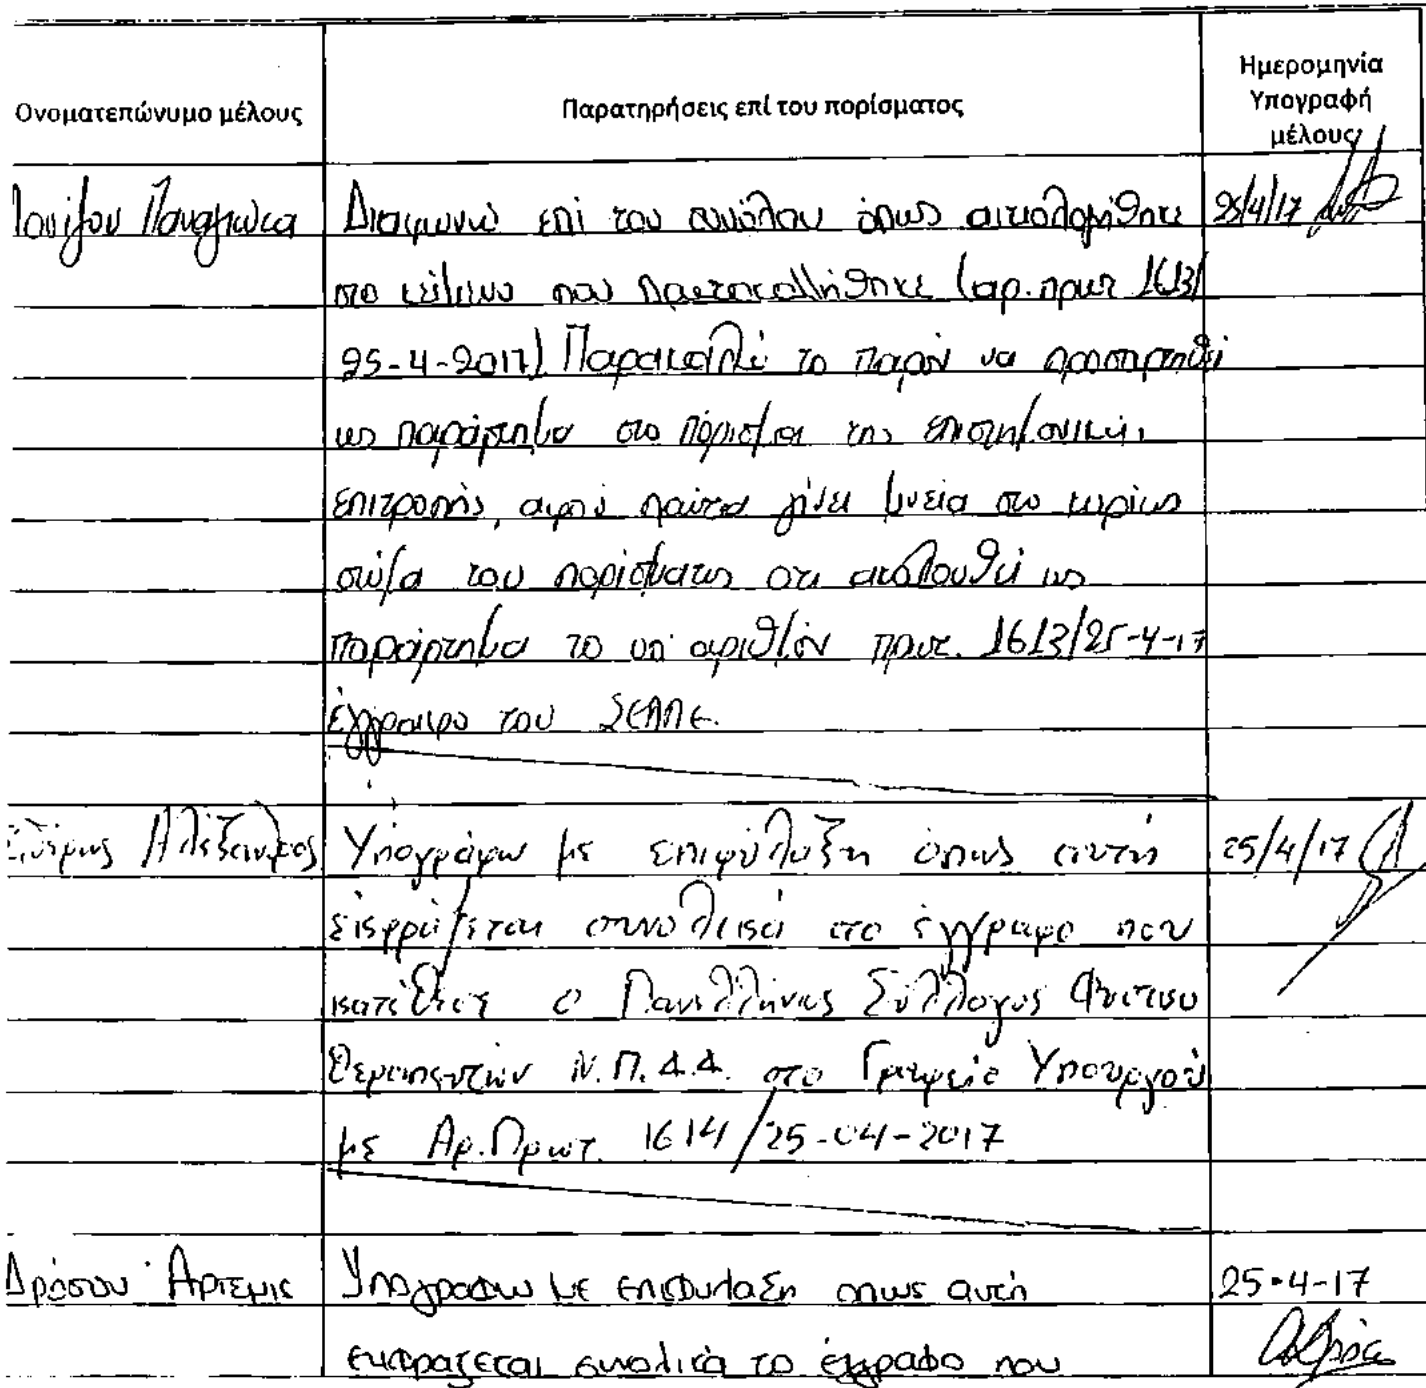 Ονοματεπώνυμο μέλους
Παρατηρήσεις επί του πορίσματος
Ημερομηνία
Υπογραφή
μέλους
Παναγιώτα
Διαφωνώ επί του συνόλου όπως αιτιολογήθηκε
25/4/17
στο κείμενο που πρωτοκολλήθηκε (αρ. πρωτ 1613/
25-4-2017) Παρακαλώ το παρόν να προσαρτηθεί
ως παράρτημα στο πόρισμα της επιστημονικής
επιτροπής, αφού πρώτα γίνει μνεία στο κυρίως
σώμα του πορίσματος οτι ακολουθεί ως
παράρτημα το υπ αριθμόν πρωτ. 1613/25-4-17
έγγραφο του ΣΕΛΛΕ.
Αλέξανδρος
Υπογράφω με επιφύλαξη όπως αυτή
25/4/17
εκφράζεται συνολικά στο έγγραφο που
κατέθεσε ο Πανελλήνιος Σύλλογος Φυσικο
θεραπευτών Ν.Π.Δ.Δ. στο Γραφείο Υπουργού
με Αρ. Πρωτ. 1614/25-04-2017
Δρόσου Αρτεμις
Υπογραφω με επιφυλαξη οπως αυτή
25-4-17
εκφραζεται συνολικά το έγγραφο που